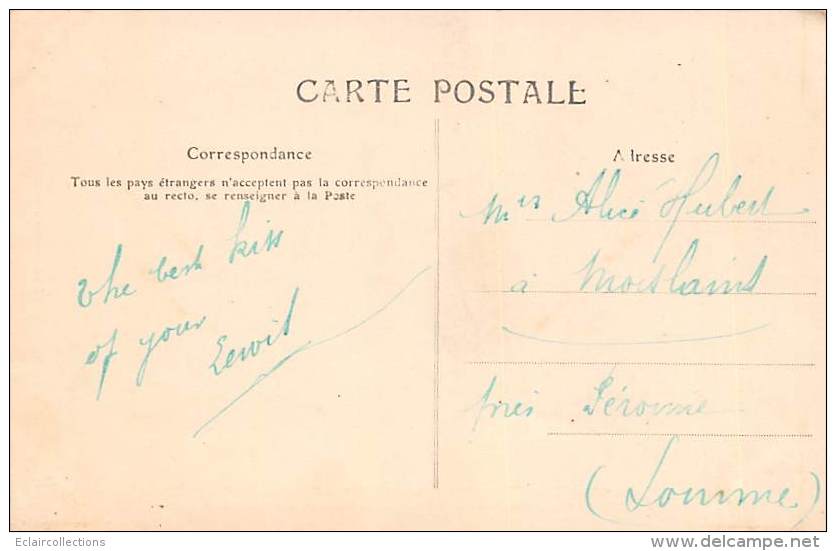 CARTE POSTALE
Correspondance
Tous les pays étrangers n'acceptent pas la correspondance
au recto, se renseigner à la Poste
the best kiss
of your
Lewis
Adresse
Miss Alice Hubert
à Moislains
près Péronne
(Somme)
Eclaircollections
delcampe.net